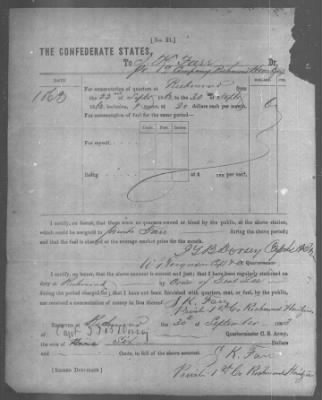 [No. 21.]
THE CONFEDERATE STATES,
To J. K. Farr Dr.
Company Richmond
DATE DOLLARS
1863 For commutation of quarters at Richmond from
the 22nd of Sept. to the 30 of Sept
186 , inclusive, dollars each per month, 6
For commutation of fuel for the same period—
Cords. Feet. Inches.
For myself,
Being at $ per cord,
I certify, on honor, that there were no quarters owned or hired by the public, at the above station,
which could be assigned to Private Farr during the above period;
and that the fuel is charged at the average market price for the month.
I certify, on honor, that the above account is correct and just; that I have been regularly stationed on
duty at Richmond by Order of
during the period charged for; that I have not been furnished with quarters, rent, or fuel, by the public,
nor received a commutation of money in lieu thereof. J K. Farr
Private 1st Co Richmond Howitzers
Received at Richmond the 30 of September 1863
of Capt Quartermaster C. S. Army,
the sum of Six Dollars
and Cents, in full of the above account.
J K. Farr
Private 1st Co Richmond Howitzers
[SIGNED DUPLICATE.]